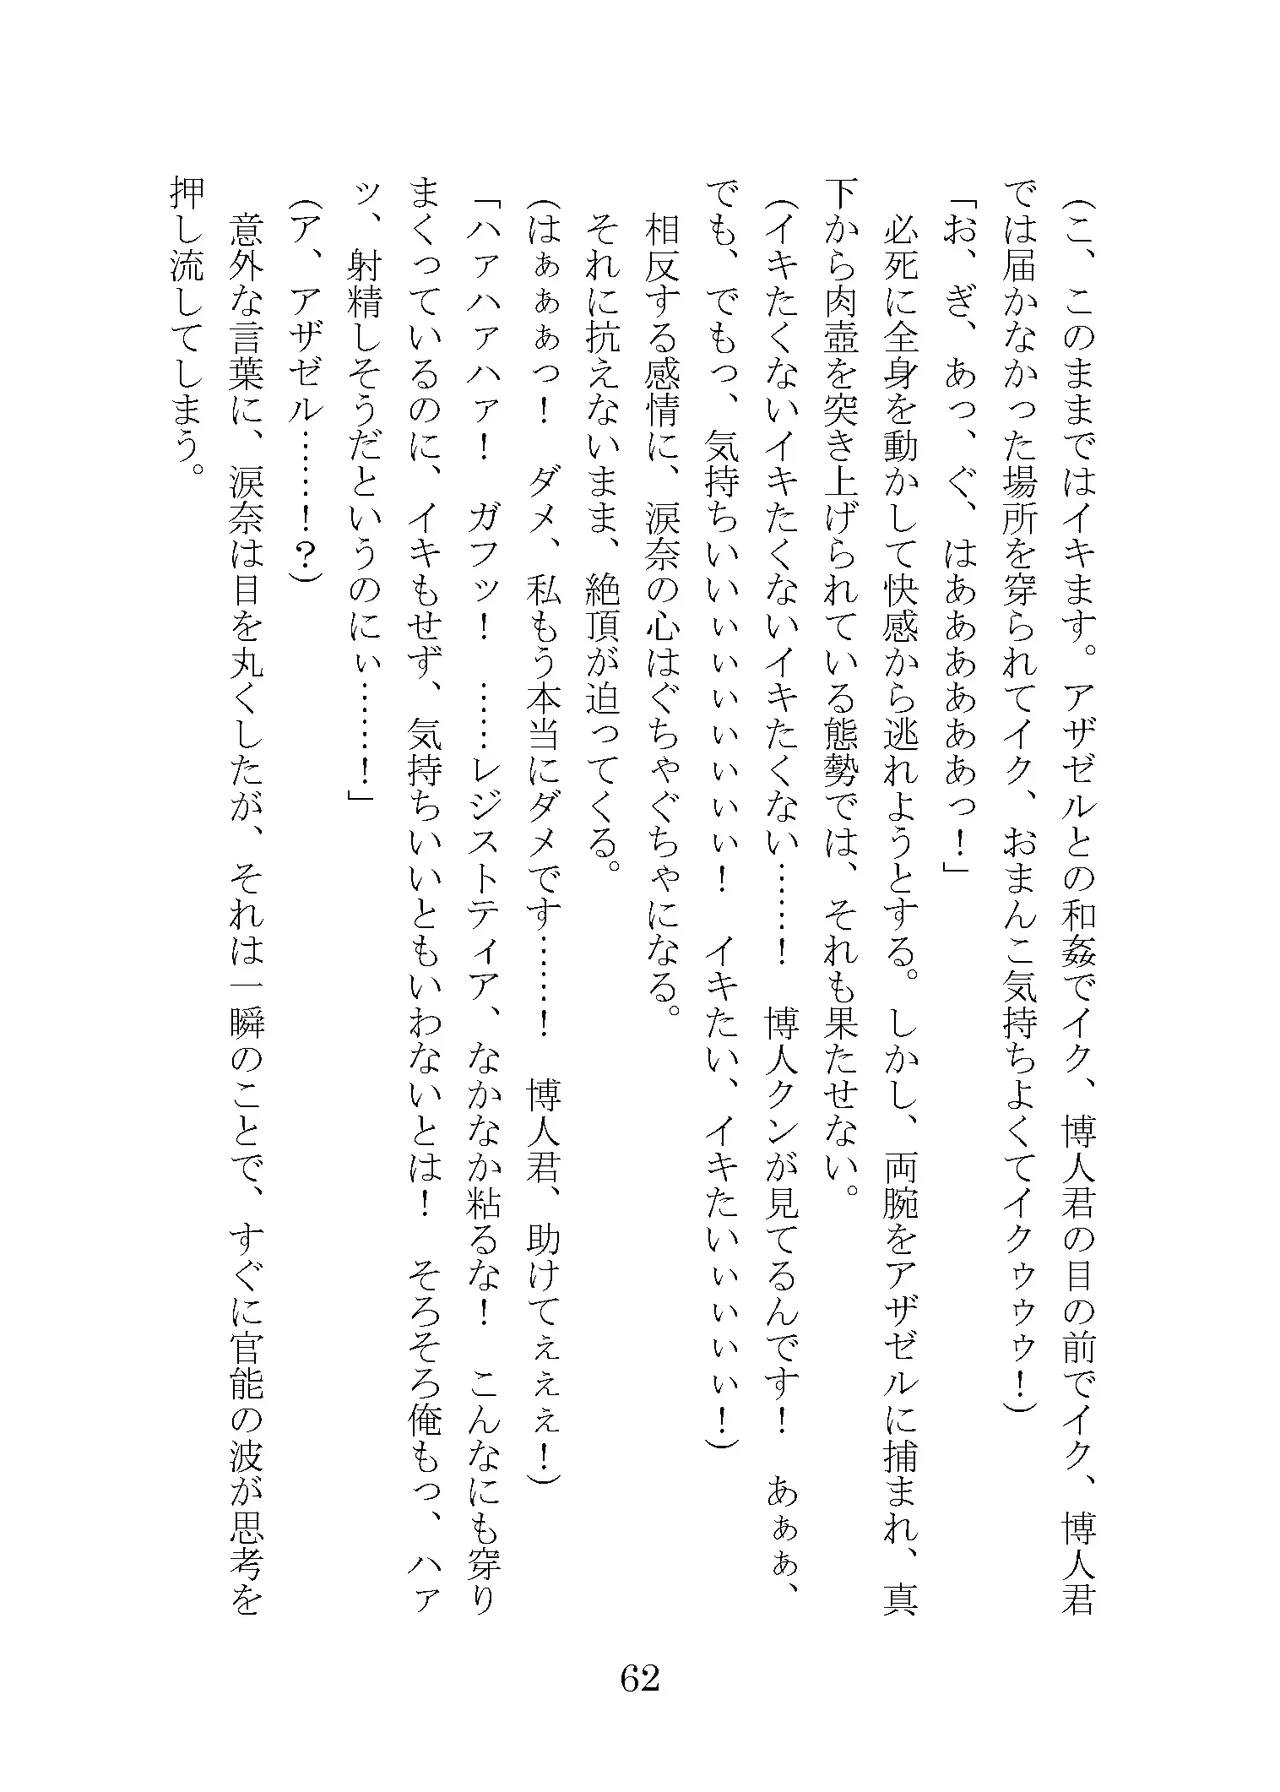 （こ、このままではイキます。アザゼルとの和姦でイク、博人君の目の前でイク、博人君
では届かなかった場所を穿られてイク、おまんこ気持ちよくてイクゥゥゥ！）
「お、ぎ、あっ、ぐ、はああああああっ！」
　必死に全身を動かして快感から逃れようとする。しかし、両腕をアザゼルに捕まれ、真
下から肉壺を突き上げられている態勢では、それも果たせない。
（イキたくないイキたくないイキたくない……！　博人クンが見てるんです！　あぁぁ、
でも、でもっ、気持ちいいいぃぃぃぃぃぃぃ！　イキたい、イキたいぃぃぃぃ！）
　相反する感情に、涙奈の心はぐちゃぐちゃになる。
　それに抗えないまま、絶頂が迫ってくる。
（はぁぁぁっ！　ダメ、私もう本当にダメです……！　博人君、助けてぇぇぇ！）
「ハァハァハァ！　ガフッ！　……レジストティア、なかなか粘るな！　こんなにも穿り
まくっているのに、イキもせず、気持ちいいともいわないとは！　そろそろ俺もっ、ハァ
ッ、射精しそうだというのにぃ……！」
（ア、アザゼル……！？）
　意外な言葉に、涙奈は目を丸くしたが、それは一瞬のことで、すぐに官能の波が思考を
押し流してしまう。
62